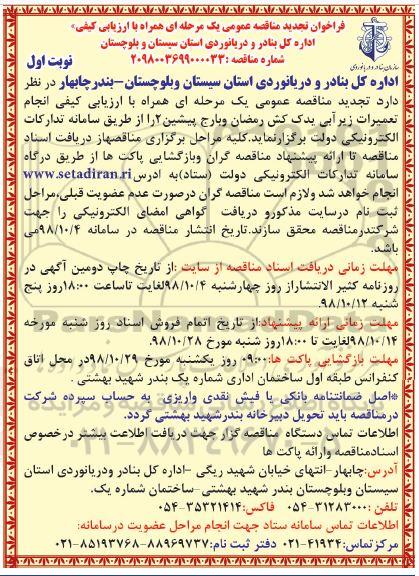 فراخوان تجدید مناقصه عمومی یک مرحله ای همراه با ارزیابی کیفی»
اداره کل بنادر و دریانوردی استان سیستان و بلوچستان
شماره مناقصه :۲۰۹۸۰۰۳۶۹۹۰۰۰۰۳۳
نوبت اول
سازمان بنادر و دریانوردی
اداره کل بنادر و دریانوردی استان سیستان وبلوچستان–بندرچابهار در نظر
دارد تجدید مناقصه عمومی یک مرحله ای همراه با ارزیابی کیفی انجام
تعمیرات زیرآبی یدک کش رمضان وبارج پیشین۲را از طریق سامانه تدارکات
الکترونیکی دولت برگزارنماید.کلیه مراحل برگزاری مناقصهاز دریافت اسناد
مناقصه تا ارائه پیشنهاد مناقصه گران وبازگشایی پاکت ها از طریق درگاه
سامانه تدارکات الکترونیکی دولت (ستاد)به ادرسwww.setadiran.ri
انجام خواهد شد ولازم است مناقصه گران درصورت عدم عضویت قبلی،مراحل
ثبت نام درسایت مذکورو دریافت گواهی امضای الکترونیکی را جهت
شرکتدرمناقصه محقق سازند.تاریخ انتشار مناقصه در سامانه ۹۸/۱۰/۴می
باشد.
مهلت زمانی دریافت اسناد مناقصه از سایت :از تاریخ چاپ دومین آگهی در
روزنامه کثیر الانتشاراز روز چهارشنبه ۹۸/۱۰/۴لغایت تاساعت ۱۸:۰۰روز پنج
شنبه ۹۸/۱۰/۱۲.
مهلت زمانی ارائه پیشنهاد:از تاریخ اتمام فروش اسناد روز شنبه مورخه
۹۸/۱۰/۱۴لغایت تا ۱۸:۰۰روز شنبه مورخ ۹۸/۱۰/۲۸.
مهلت بازگشایی پاکت ها:۰۹:۰۰ روز یکشنبه مورخ ۹۸/۱۰/۲۹در محل اتاق
کنفرانس طبقه اول ساختمان اداری شماره یک بندر شهید بهشتی .
*اصل ضمانتنامه بانکی یا فیش نقدی واریزی به حساب سپرده شرکت
درمناقصه باید تحویل دبیرخانه بندرشهید بهشتی گردد.
اطلاعات تماس دستگاه مناقصه گزار جهت دریافت اطلاعات بیشتر درخصوص
اسنادمناقصه وارائه پاکت ها
آدرس:چابهار–انتهای خیابان شهید ریگی –اداره کل بنادر ودریانوردی استان
سیستان وبلوچستان بندر شهید بهشتی–ساختمان شماره یک.
تلفن :۳۱۲۸۳۰۰۰–۰۵۴ فاکس:۳۵۳۲۱۴۱۴–۰۵۴
اطلاعات تماس سامانه ستاد جهت انجام مراحل عضویت درسامانه:
مرکزتماس:۴۱۹۳۴–۰۲۱ دفتر ثبت نام:۸۸۹۶۹۷۳۷–۸۵۱۹۳۷۶۸–۰۲۱